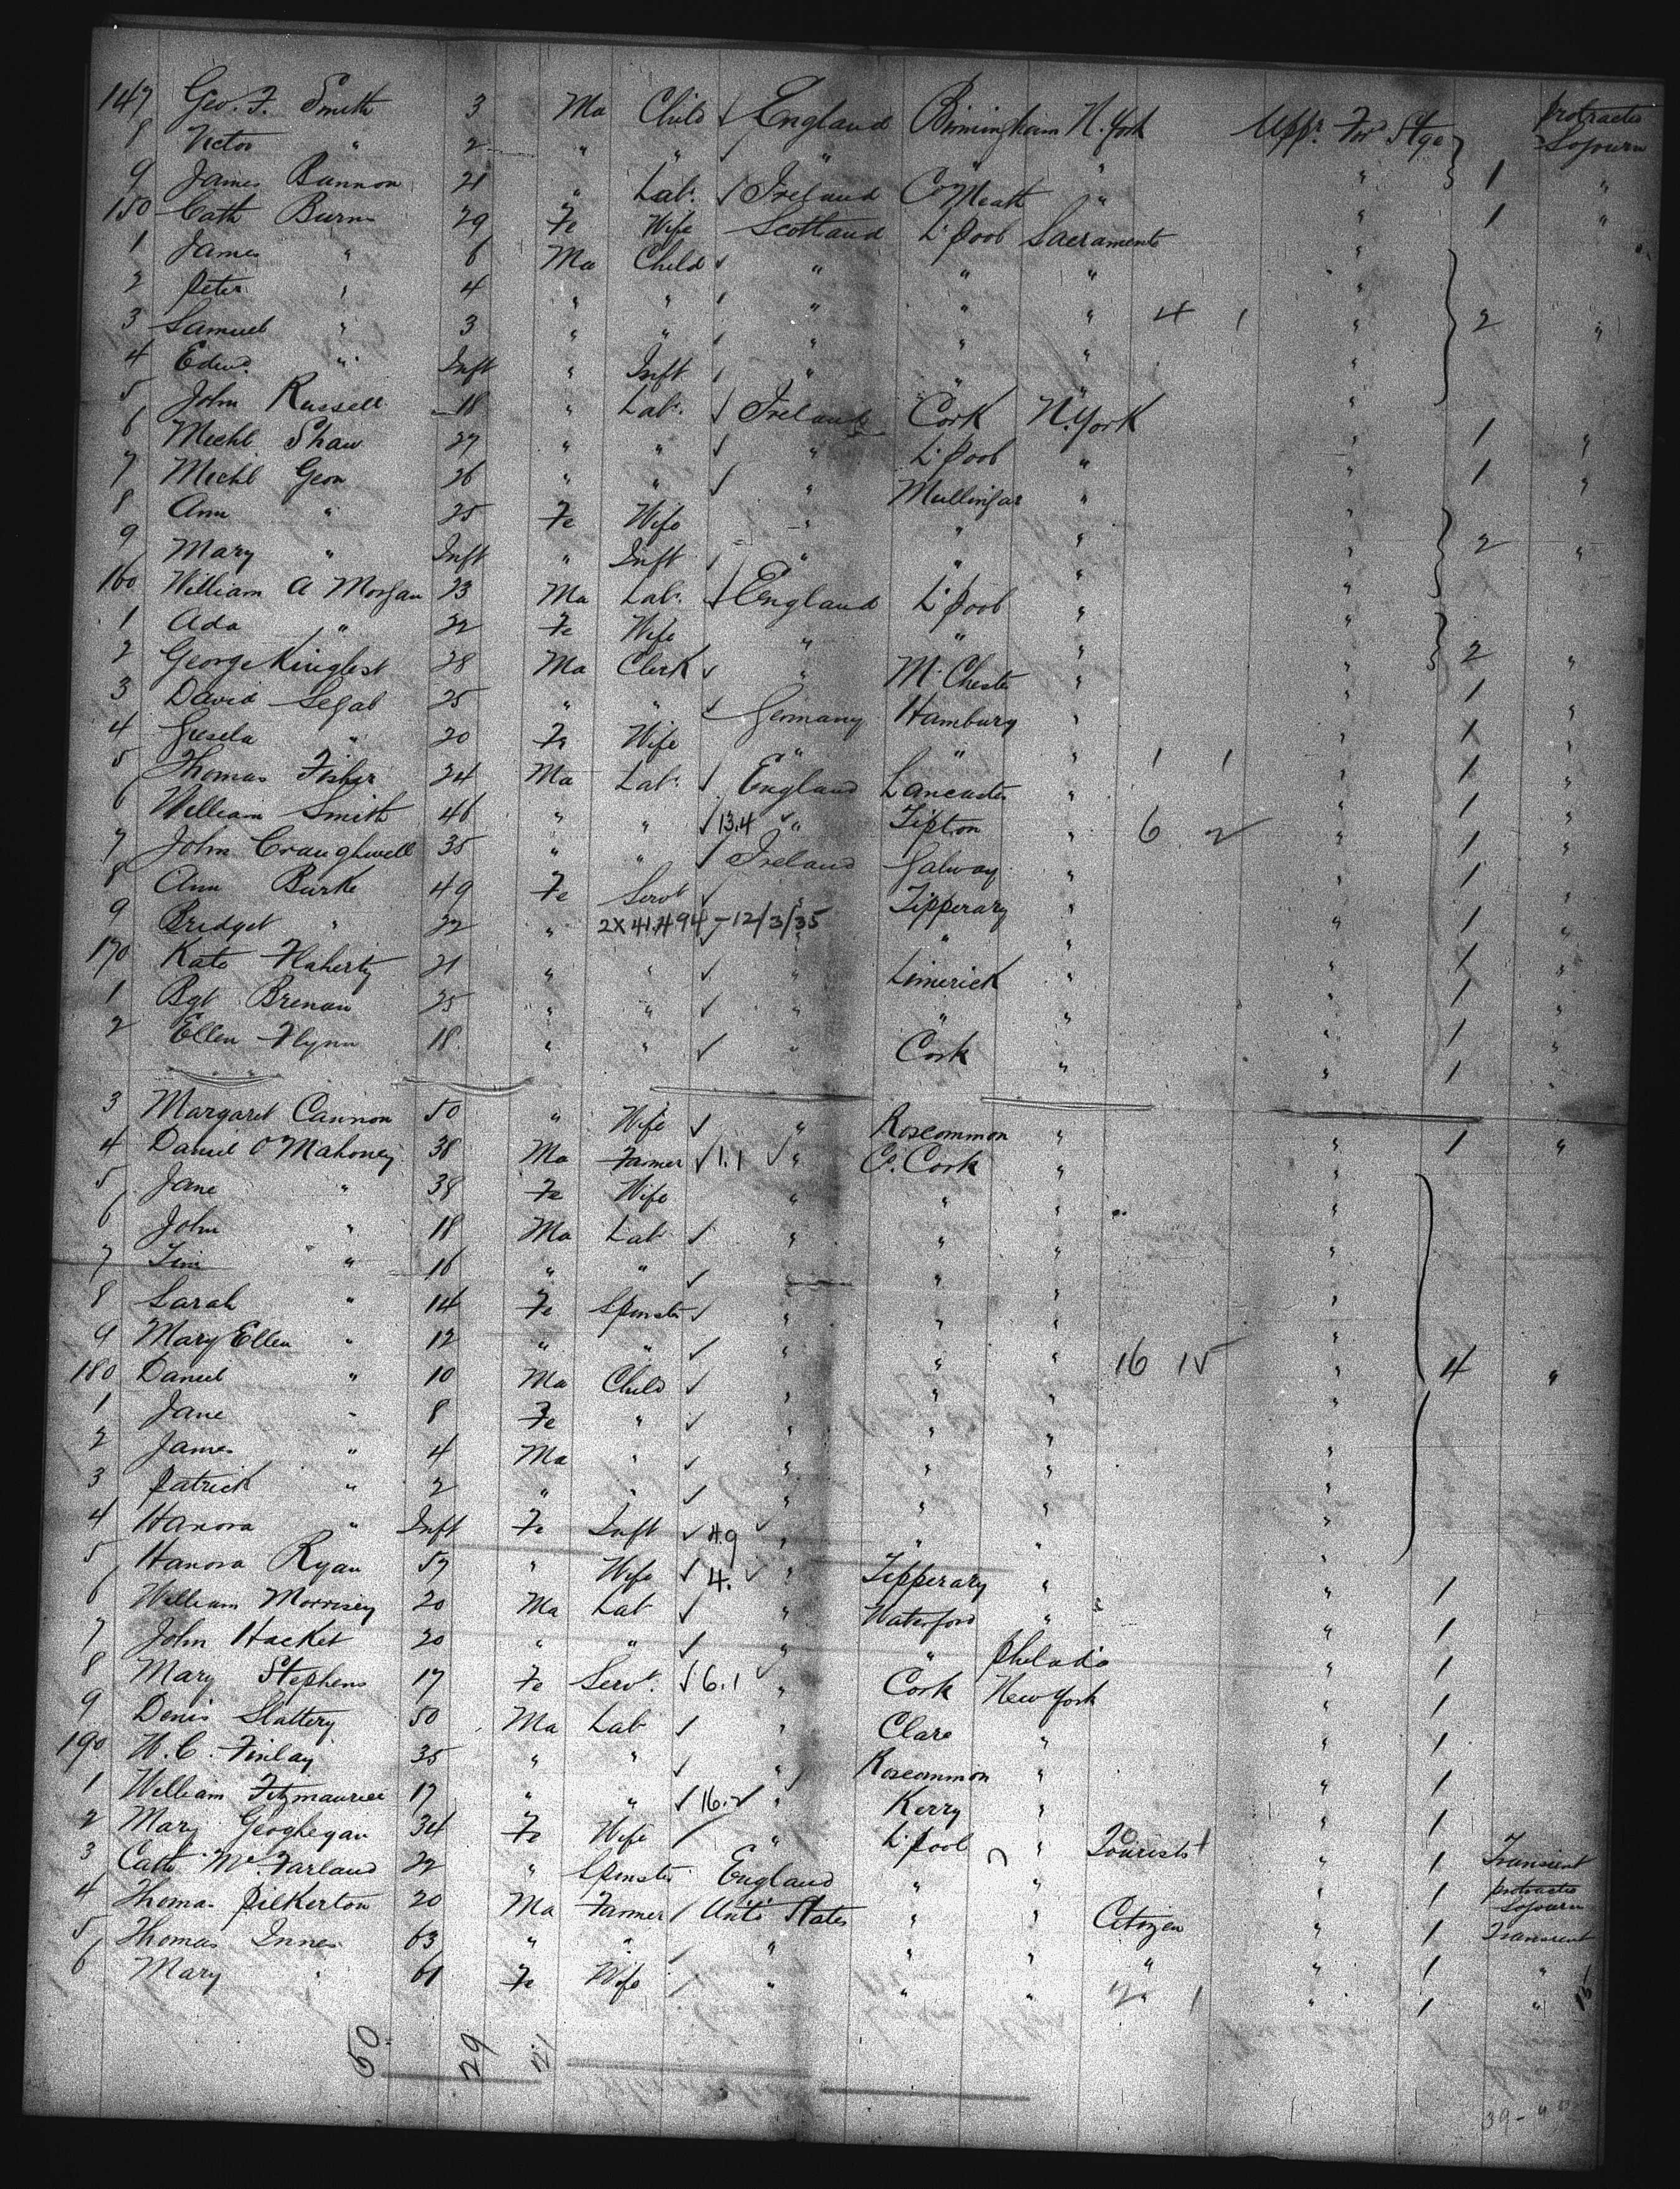 147 Geo. F. Smith 3 Ma Child √ England Birmingham N. York Uppr For Stge protracted Sojourn
8 Victor " 2 " " √ " " " } 1 "
9 James Bannon 21 " Labr √ Ireland Co Meath " " 1 "
150 Cath Burns 29 Fe Wife Scotland L'pool Sacramento " "
1 James " 6 Ma Child √ " " " "
2 Peter " 4 " " √ " " " 4 1 " } 2 "
3 Samuel " 3 " " √ " " " "
4 Edwd. " Inft " Inft √ " " " "
5 John Russell 18 " Labr. √ Ireland Cork N. York " 1 "
6 Michl Shaw 27 " " √ " L'pool " " 1 "
7 Michl Geon 26 " " √ " Mullingar " "
8 Ann " 25 Fe Wife " " " " } 2 "
9 Mary " Inft " Inft √ " " " "
160 William A Morgan 23 Ma Labr. √ England L'pool " "
1 Ada " 22 Fe Wife " " " " } 2 "
2 George 28 Ma Clerk √ " M'Chester " " 1 "
3 David Segal 25 " " √ Germany Hamburg " " 1 "
4 Gisela " 20 Fe Wife " " " 1 1 " 1 "
5 Thomas Fisher 24 Ma Labr √ England Lancaster " " 1 "
6 William Smith 46 " " √ 13.4 √ " Tipton " 6 2 " 1 "
7 John Craughwell 35 " " √ Ireland Galway " " 1 "
8 Ann Burke 49 Fe Servt √ " Tipperary " " 1 "
9 Bridget " 22 " 2X - 12/3/35 √ " " " " 1 "
170 Kate Flaherty 21 " " √ " Limerick " " 1 "
1 Bgt Brenan 25 " " √ " " " " 1 "
2 Ellen Flynn 18 " " √ " Cork " " 1 "
3 Margaret Cannon 50 " Wife √ " Roscommon " " 1 "
4 Daniel O'Mahoney 38 Ma Farmer √ 1.1 √ " Co. Cork " "
5 Jane " 38 Fe Wife " " " "
6 John " 18 Ma Labr √ " " " "
7 Tim " 16 " " √ " " " "
8 Sarah " 14 Fe Spinster √ " " " "
9 Mary Ellen " 12 " " √ " " " 16 15 "
180 Daniel " 10 Ma Child √ " " " " } 4 "
1 Jane " 8 Fe " √ " " " "
2 James " 4 Ma " √ " " " "
3 Patrick " 2 " " √ " " " "
4 Hanora " Inft Fe Inft √ √ " " " "
5 Hanora Ryan 57 " Wife √ 4. √ " Tipperary " " 1
6 William Morrisey 20 Ma Labr √ " Waterford " " 1
7 John Hacket 20 " " √ " " Philada " 1
8 Mary Stephens 17 Fe Servt. √ 6.1 √ " Cork New York " 1
9 Denis Slattery 50 Ma Labr √ " Clare " " 1
190 W. C. Finlay 35 " " √ " Roscommon " " 1
1 William Fitzmaurice 17 " " √ 16.2 √ " Kerry " " 1
2 Mary Geoghegan 34 Fe Wife / " L'pool " Tourist " 1 Transient
3 Cath McFarland 22 " Spinster England " " " 1 protracted Sojourn
4 Thomas Pilkerton 20 Ma Farmer / Unitd States " " Citizen " 1 Transient
5 Thomas Innes 63 " " / " " " " " 1 "
6 Mary " 61 Fe Wife / " " " " 1 " 1 "
50 29 21